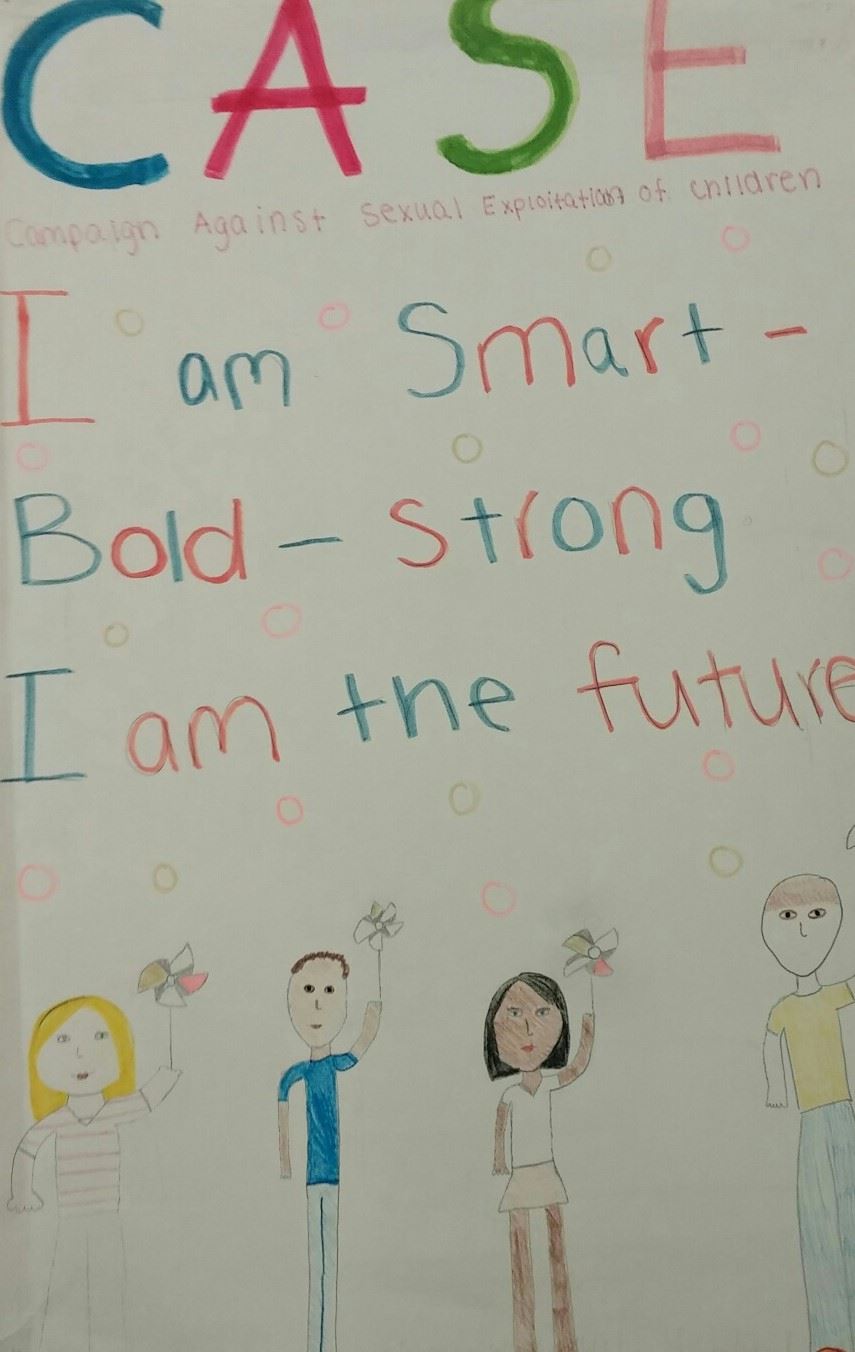 CASE
Campaign Against Sexual Exploitation of children
I am Smart -
Bold - Strong
I am the future